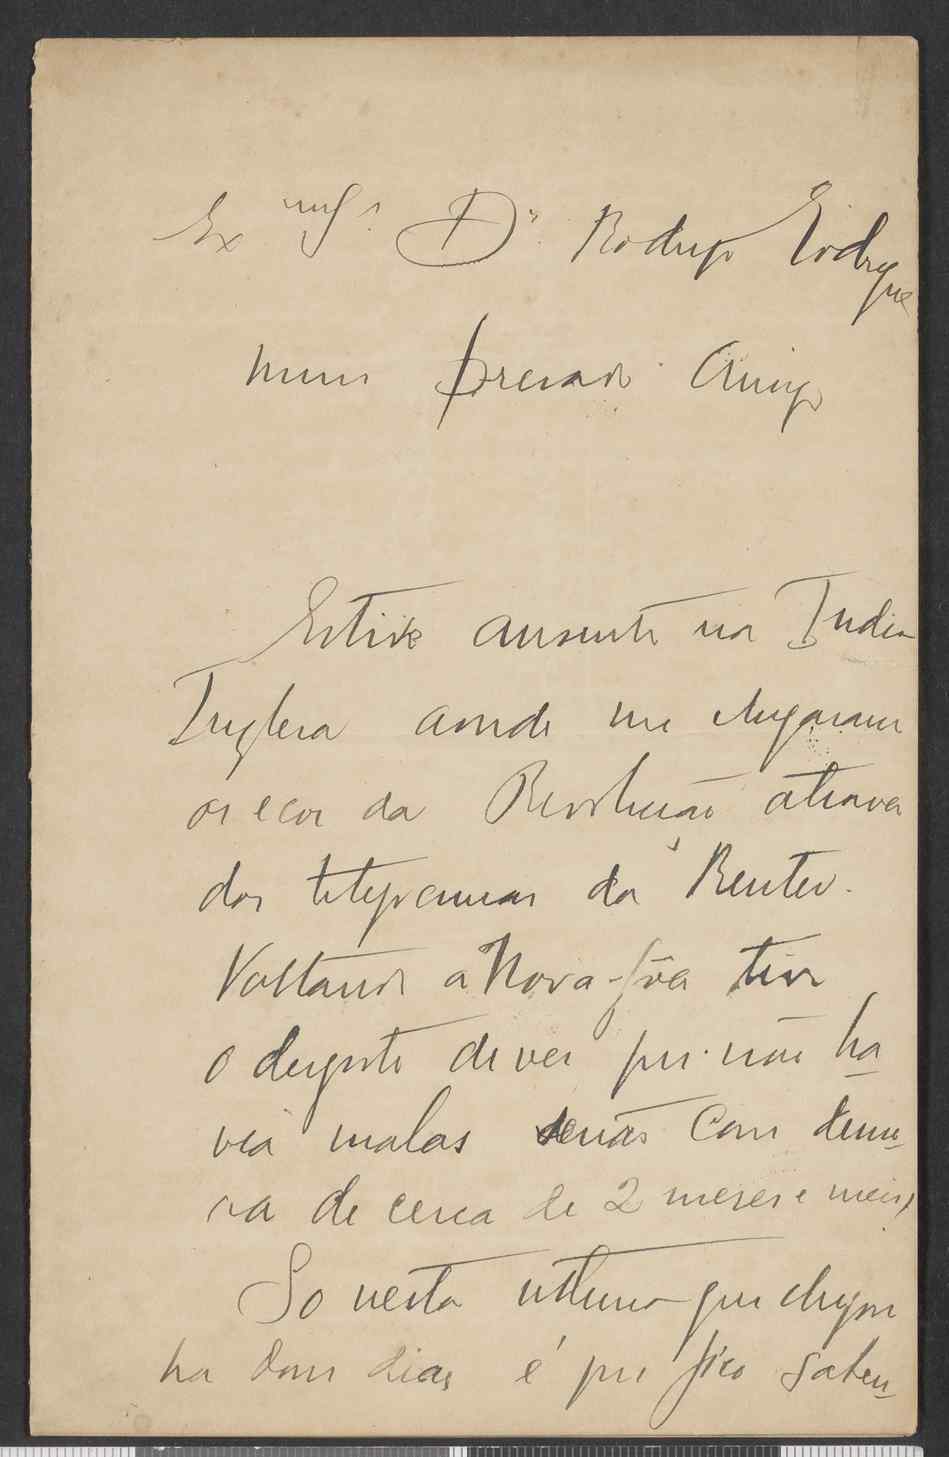 Ex.mo Sr. Dr. Rodrigo Rodrigues
meu prezado Amigo
Estive ausente na India
Inglesa aonde me chegaram
os ecos da Revolução atravez
dos telegramas da Reuter.
Voltando a Nova-Gôa tive
o desgosto de ver que não ha
via malas senão com demo
ra de cerca de 2 meses e meio,
So nesta ultima que chegou
ha dous dias é que fico saben